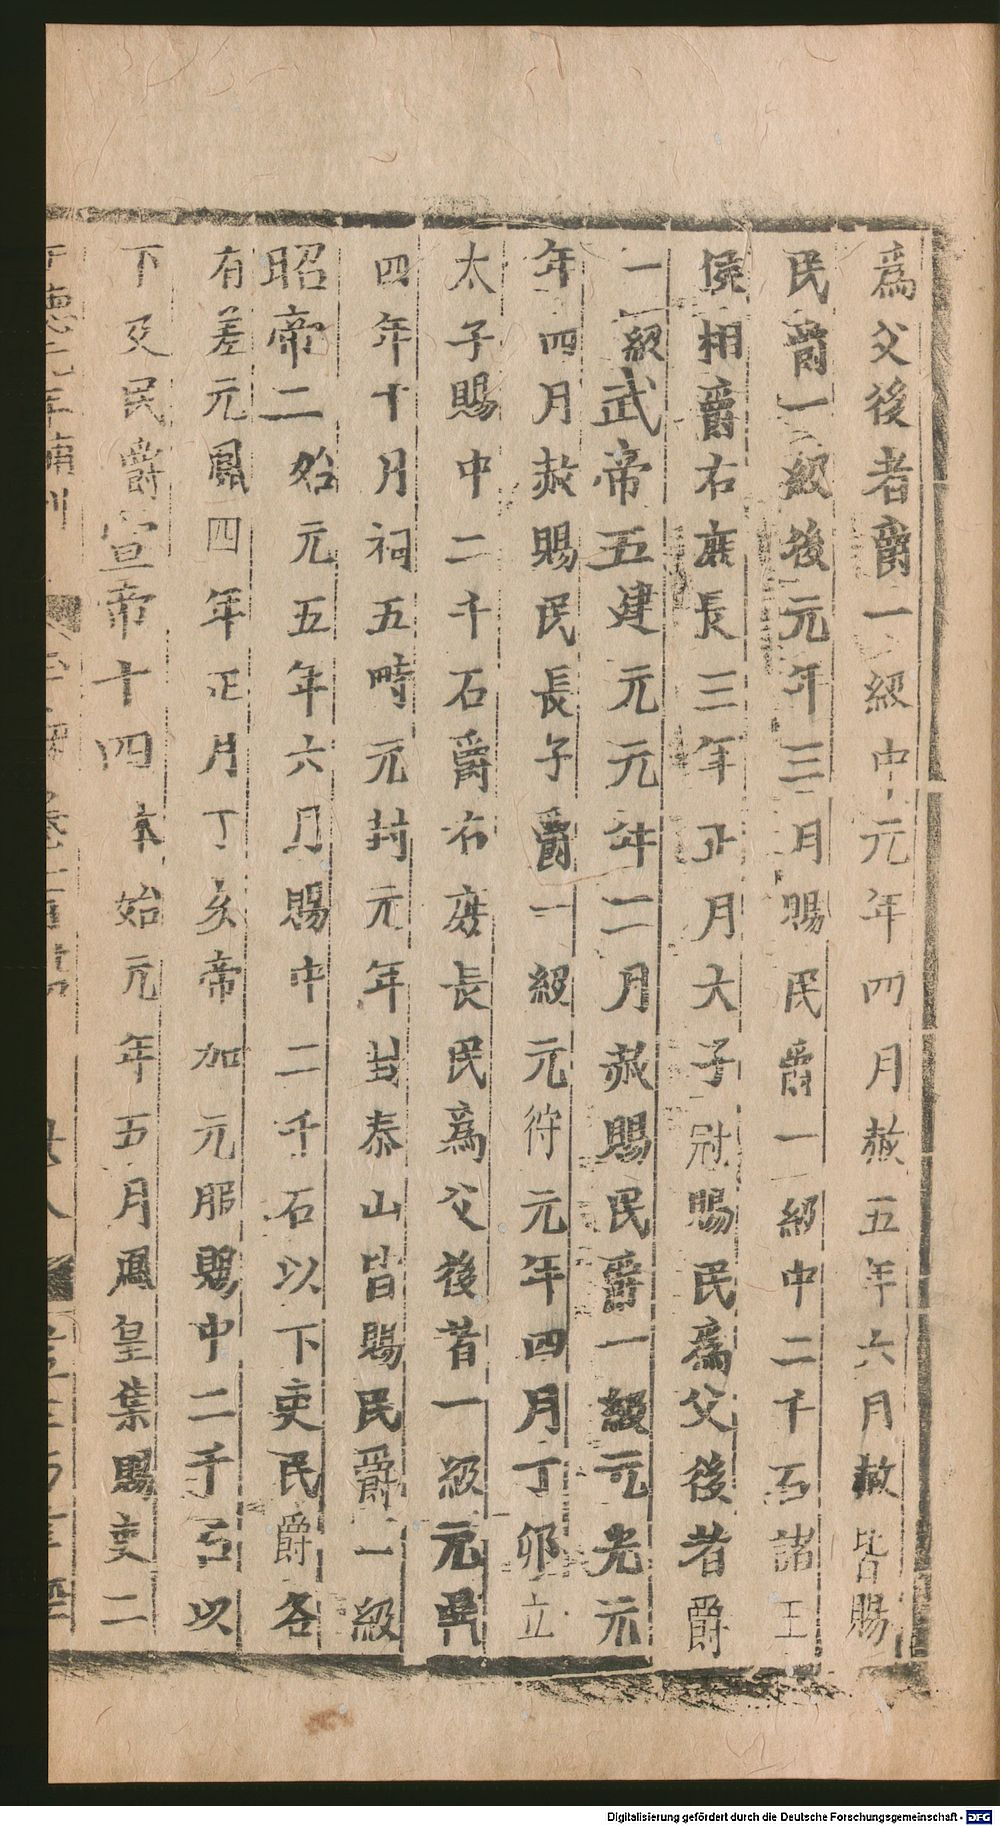 爲父後者爵一級中元年四月赦五年六月赦皆賜
民爵一級後元年三月賜民爵一級中二千石諸王
侯相爵右庶長三年正月大子冠賜民爲父後者爵
一級武帝五建元元年二月赦賜民爵一級元光元
年四月赦賜民長子爵一級元狩元年四月丁卯立
太子賜中二千石爵右庶長民爲父後者一級元鼎
四年十月祠五畤元封元年封泰山皆賜民爵一級
昭帝二始元五年六月賜中二千石以下吏民爵各
有差元鳳四年正月丁亥帝加元服賜中二千石以
下及民爵宣帝十四本始元年五月鳳皇集賜吏二
正德元年補刊
Digitalisierung gefördert durch die Deutsche Forschungsgemeinschaft - DFG